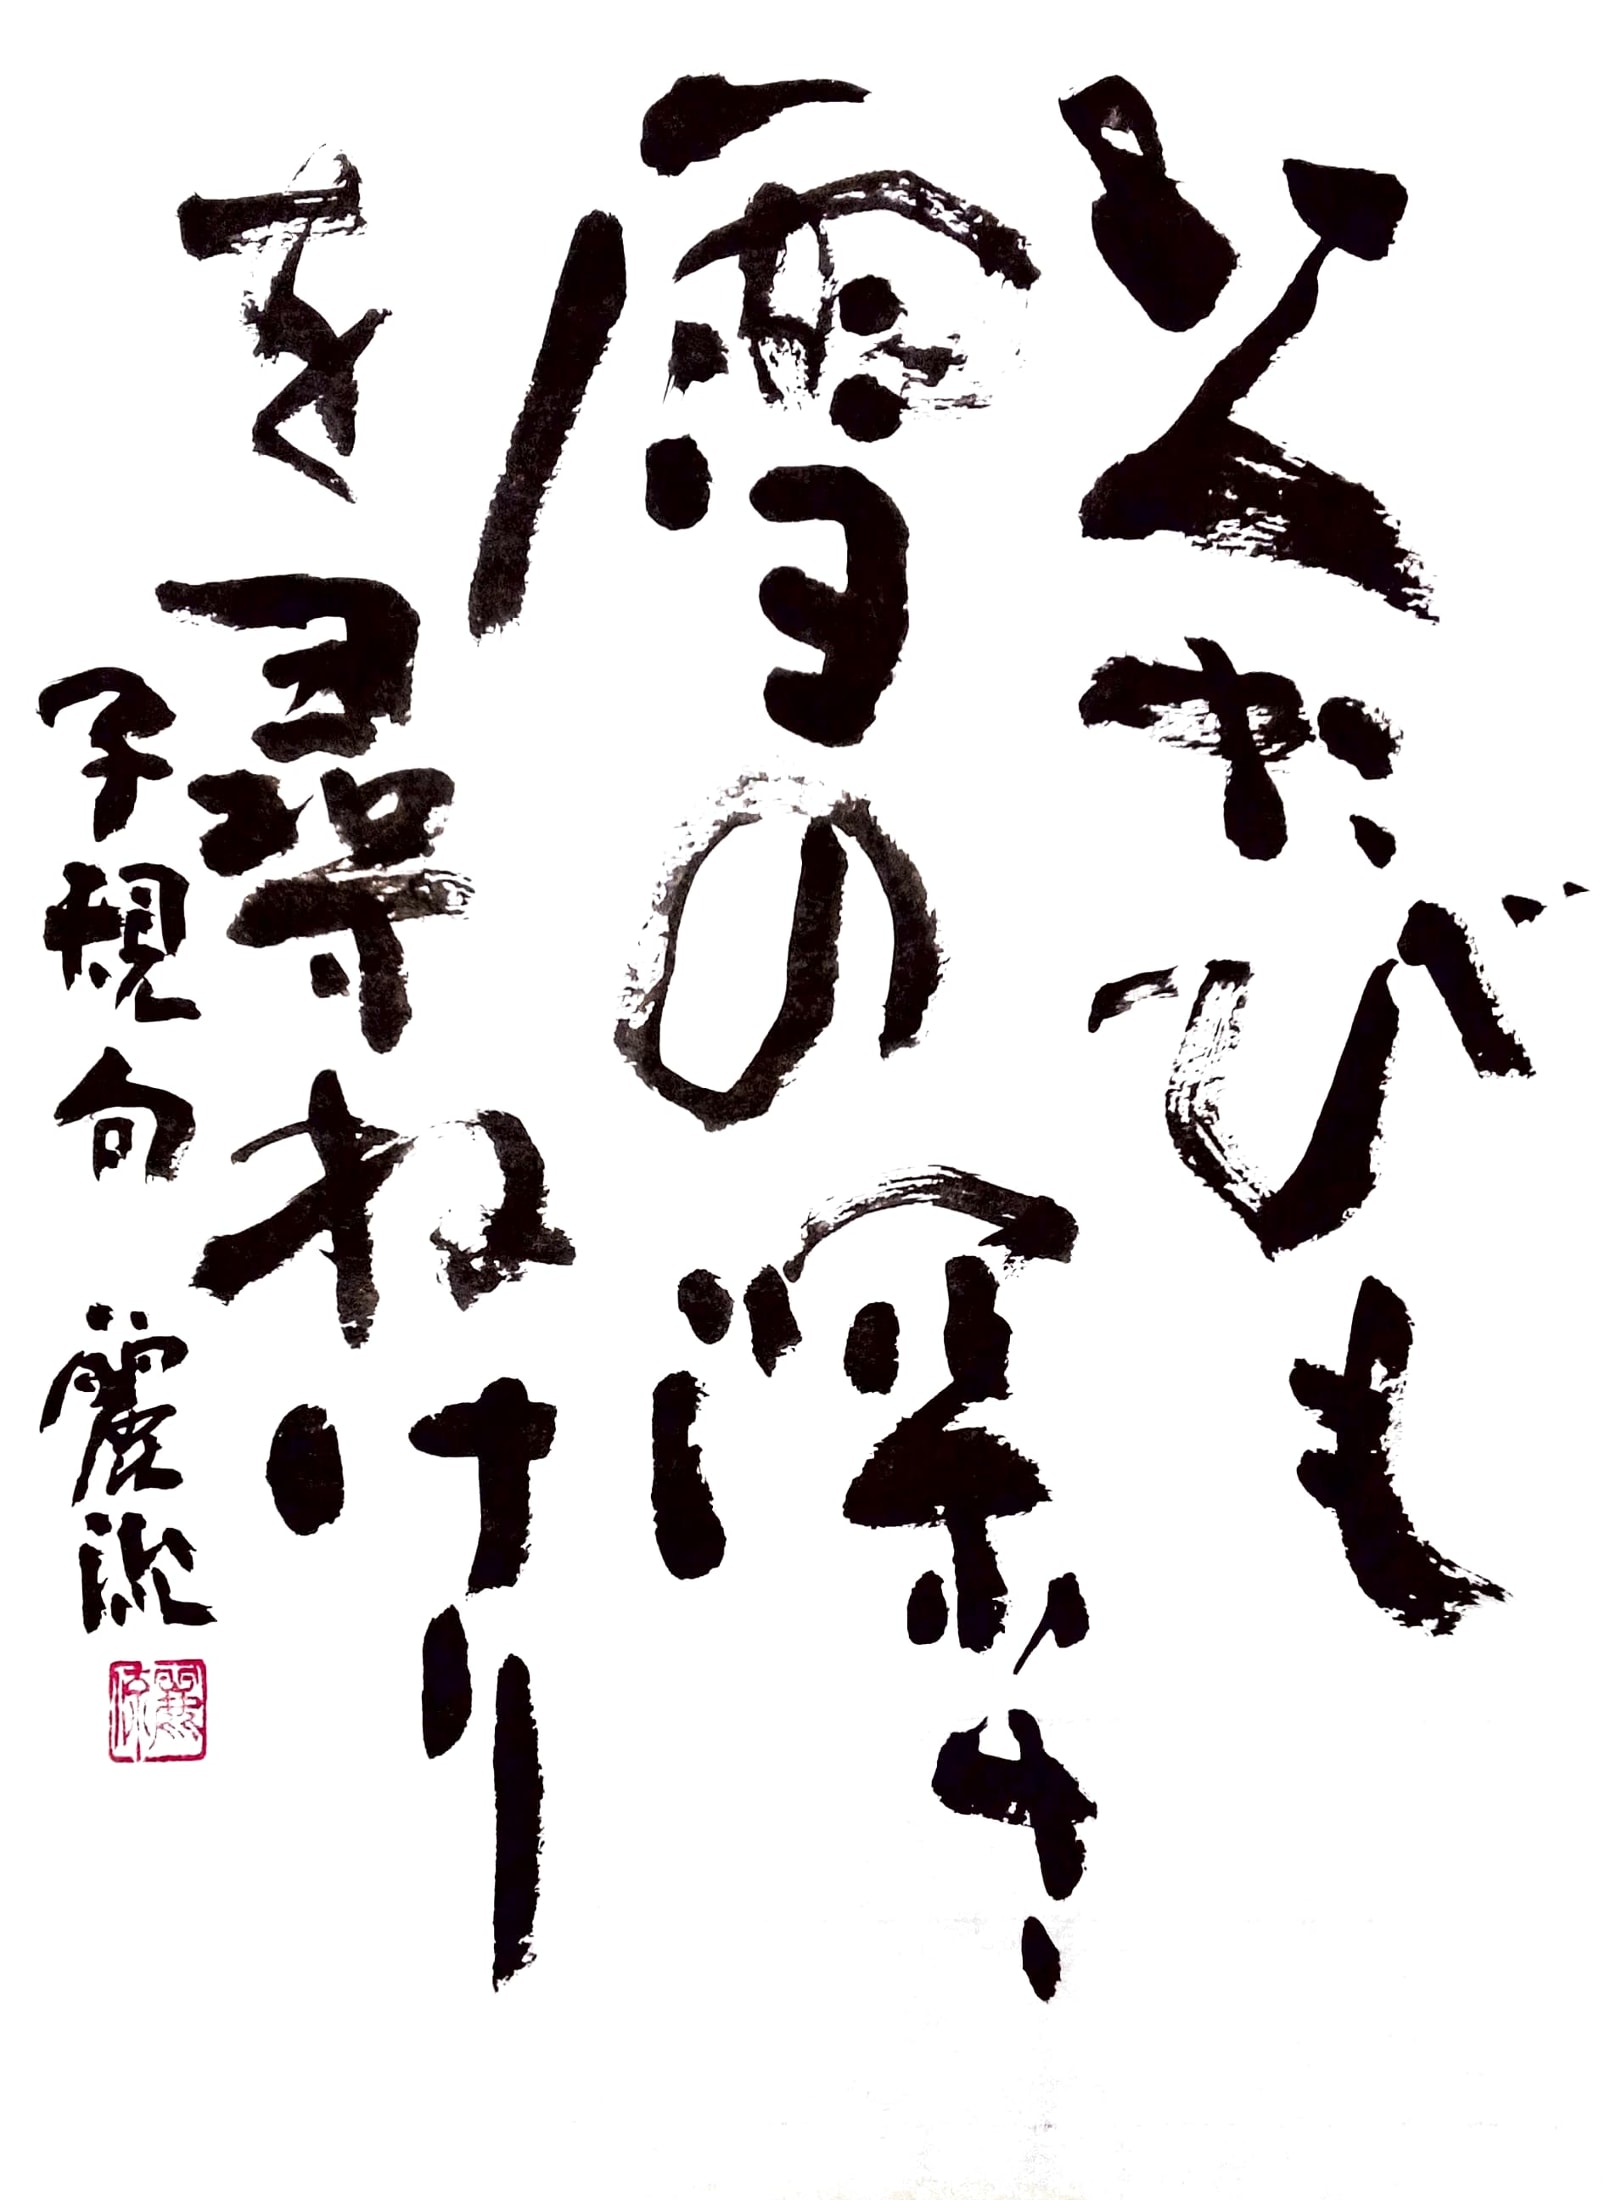 いくたびも
雪の深さ
を尋ねけり
子規句 麗